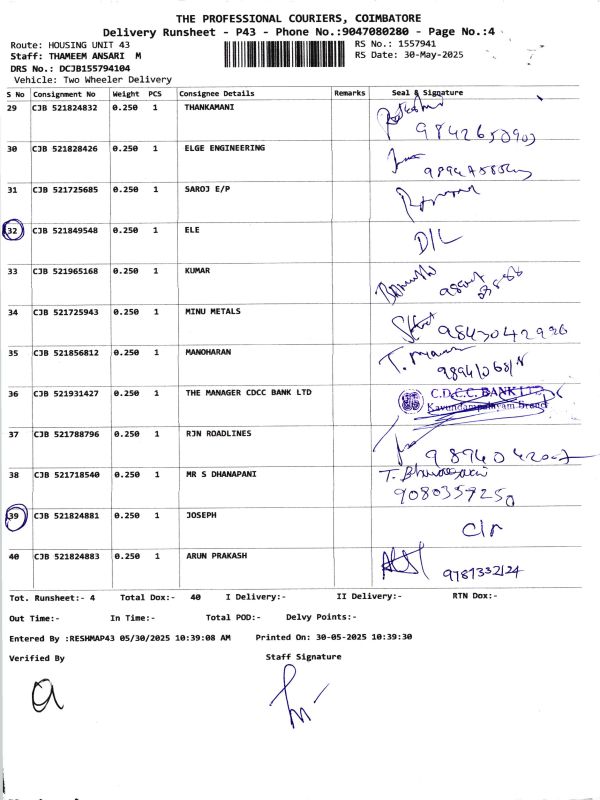 THE PROFESSIONAL COURIERS, COIMBATORE
Delivery Runsheet - P43 - Phone No.:9047080280 - Page No.:4
Route: HOUSING UNIT 43
RS No.: 1557941
Staff: THAMEEM ANSARI M
RS Date: 30-May-2025
DRS No.: DCJB155794104
Vehicle: Two Wheeler Delivery
S No Consignment No Weight PCS Consignee Details Remarks Seal & Signature
29 CJB 521824832 0.250 1 THANKAMANI
9842650903
30 CJB 521828426 0.250 1 ELGE ENGINEERING
31 CJB 521725685 0.250 1 SAROJ E/P
32 CJB 521849548 0.250 1 ELE D/L
33 CJB 521965168 0.250 1 KUMAR
34 CJB 521725943 0.250 1 MINU METALS
9843042926
35 CJB 521856812 0.250 1 MANOHARAN
36 CJB 521931427 0.250 1 THE MANAGER CDCC BANK LTD C.D.C.C. BANK LTD
Kavundampalayam Branch
37 CJB 521788796 0.250 1 RJN ROADLINES
38 CJB 521718540 0.250 1 MR S DHANAPANI
9080359250
39 CJB 521824881 0.250 1 JOSEPH
40 CJB 521824883 0.250 1 ARUN PRAKASH
Tot. Runsheet:- 4 Total Dox:- 40 I Delivery:- II Delivery:- RTN Dox:-
Out Time:- In Time:- Total POD:- Delvy Points:-
Entered By :RESHMAP43 05/30/2025 10:39:08 AM Printed On: 30-05-2025 10:39:30
Verified By Staff Signature